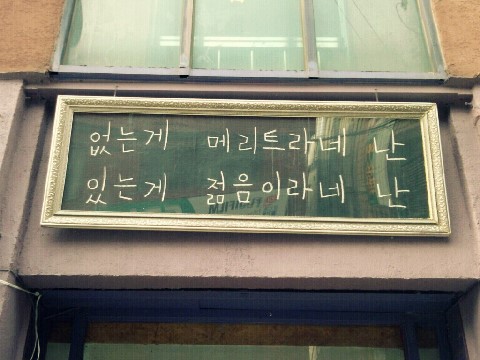 없는게 메리트라네 난
있는게 젊음이라네 난